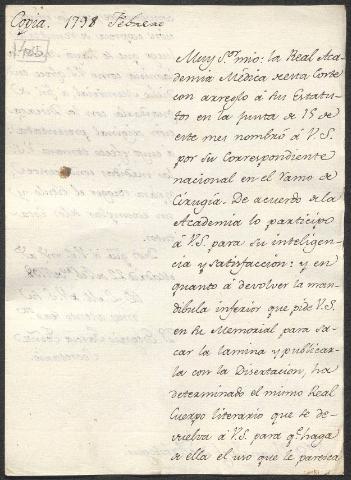 Copia. 1798 Febrero
Muy S.or mio: la Real Aca-
demia Médica de esta Corte
con arreglo à sus Estatu-
tos en la junta de 15 de
este mes nombró à V.S.
por su Correspondiente
nacional en el ramo de
Cirugía. De acuerdo de la
Academia lo participo
à V.S. para su inteligen-
cia y satisfaccion: y en
quanto à devolver la man-
dibula inferior que pide V.S.
en su Memorial para sa-
car la lamina y publicar-
la con la Disertacion, ha
determinado el mismo Real
Cuerpo literario que se de-
vuelva à V.S. para q.e haga
de ella el uso que le parezca